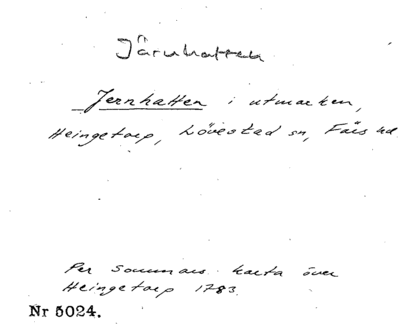 Järnhatten
Jernhatten i utmarken,
Heingetorp, Lövestad sn, Färs hd
Per Sommars karta över
Heingetorp 1783.
Nr 5024.